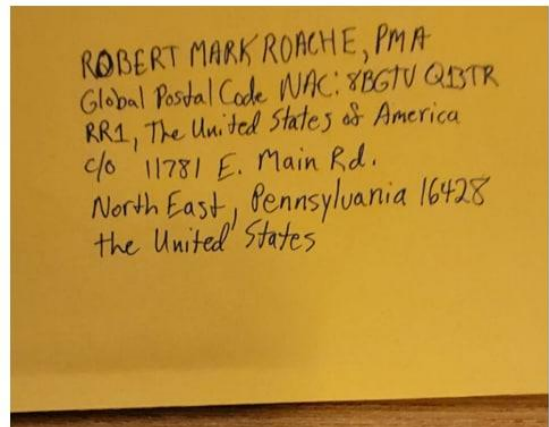 ROBERT MARK ROACHE, PMA
Global Postal Code NAC: 8BGTV QBTR
RR1, The United States of America
c/o 11781 E. Main Rd.
North East, Pennsylvania 16428
the United States